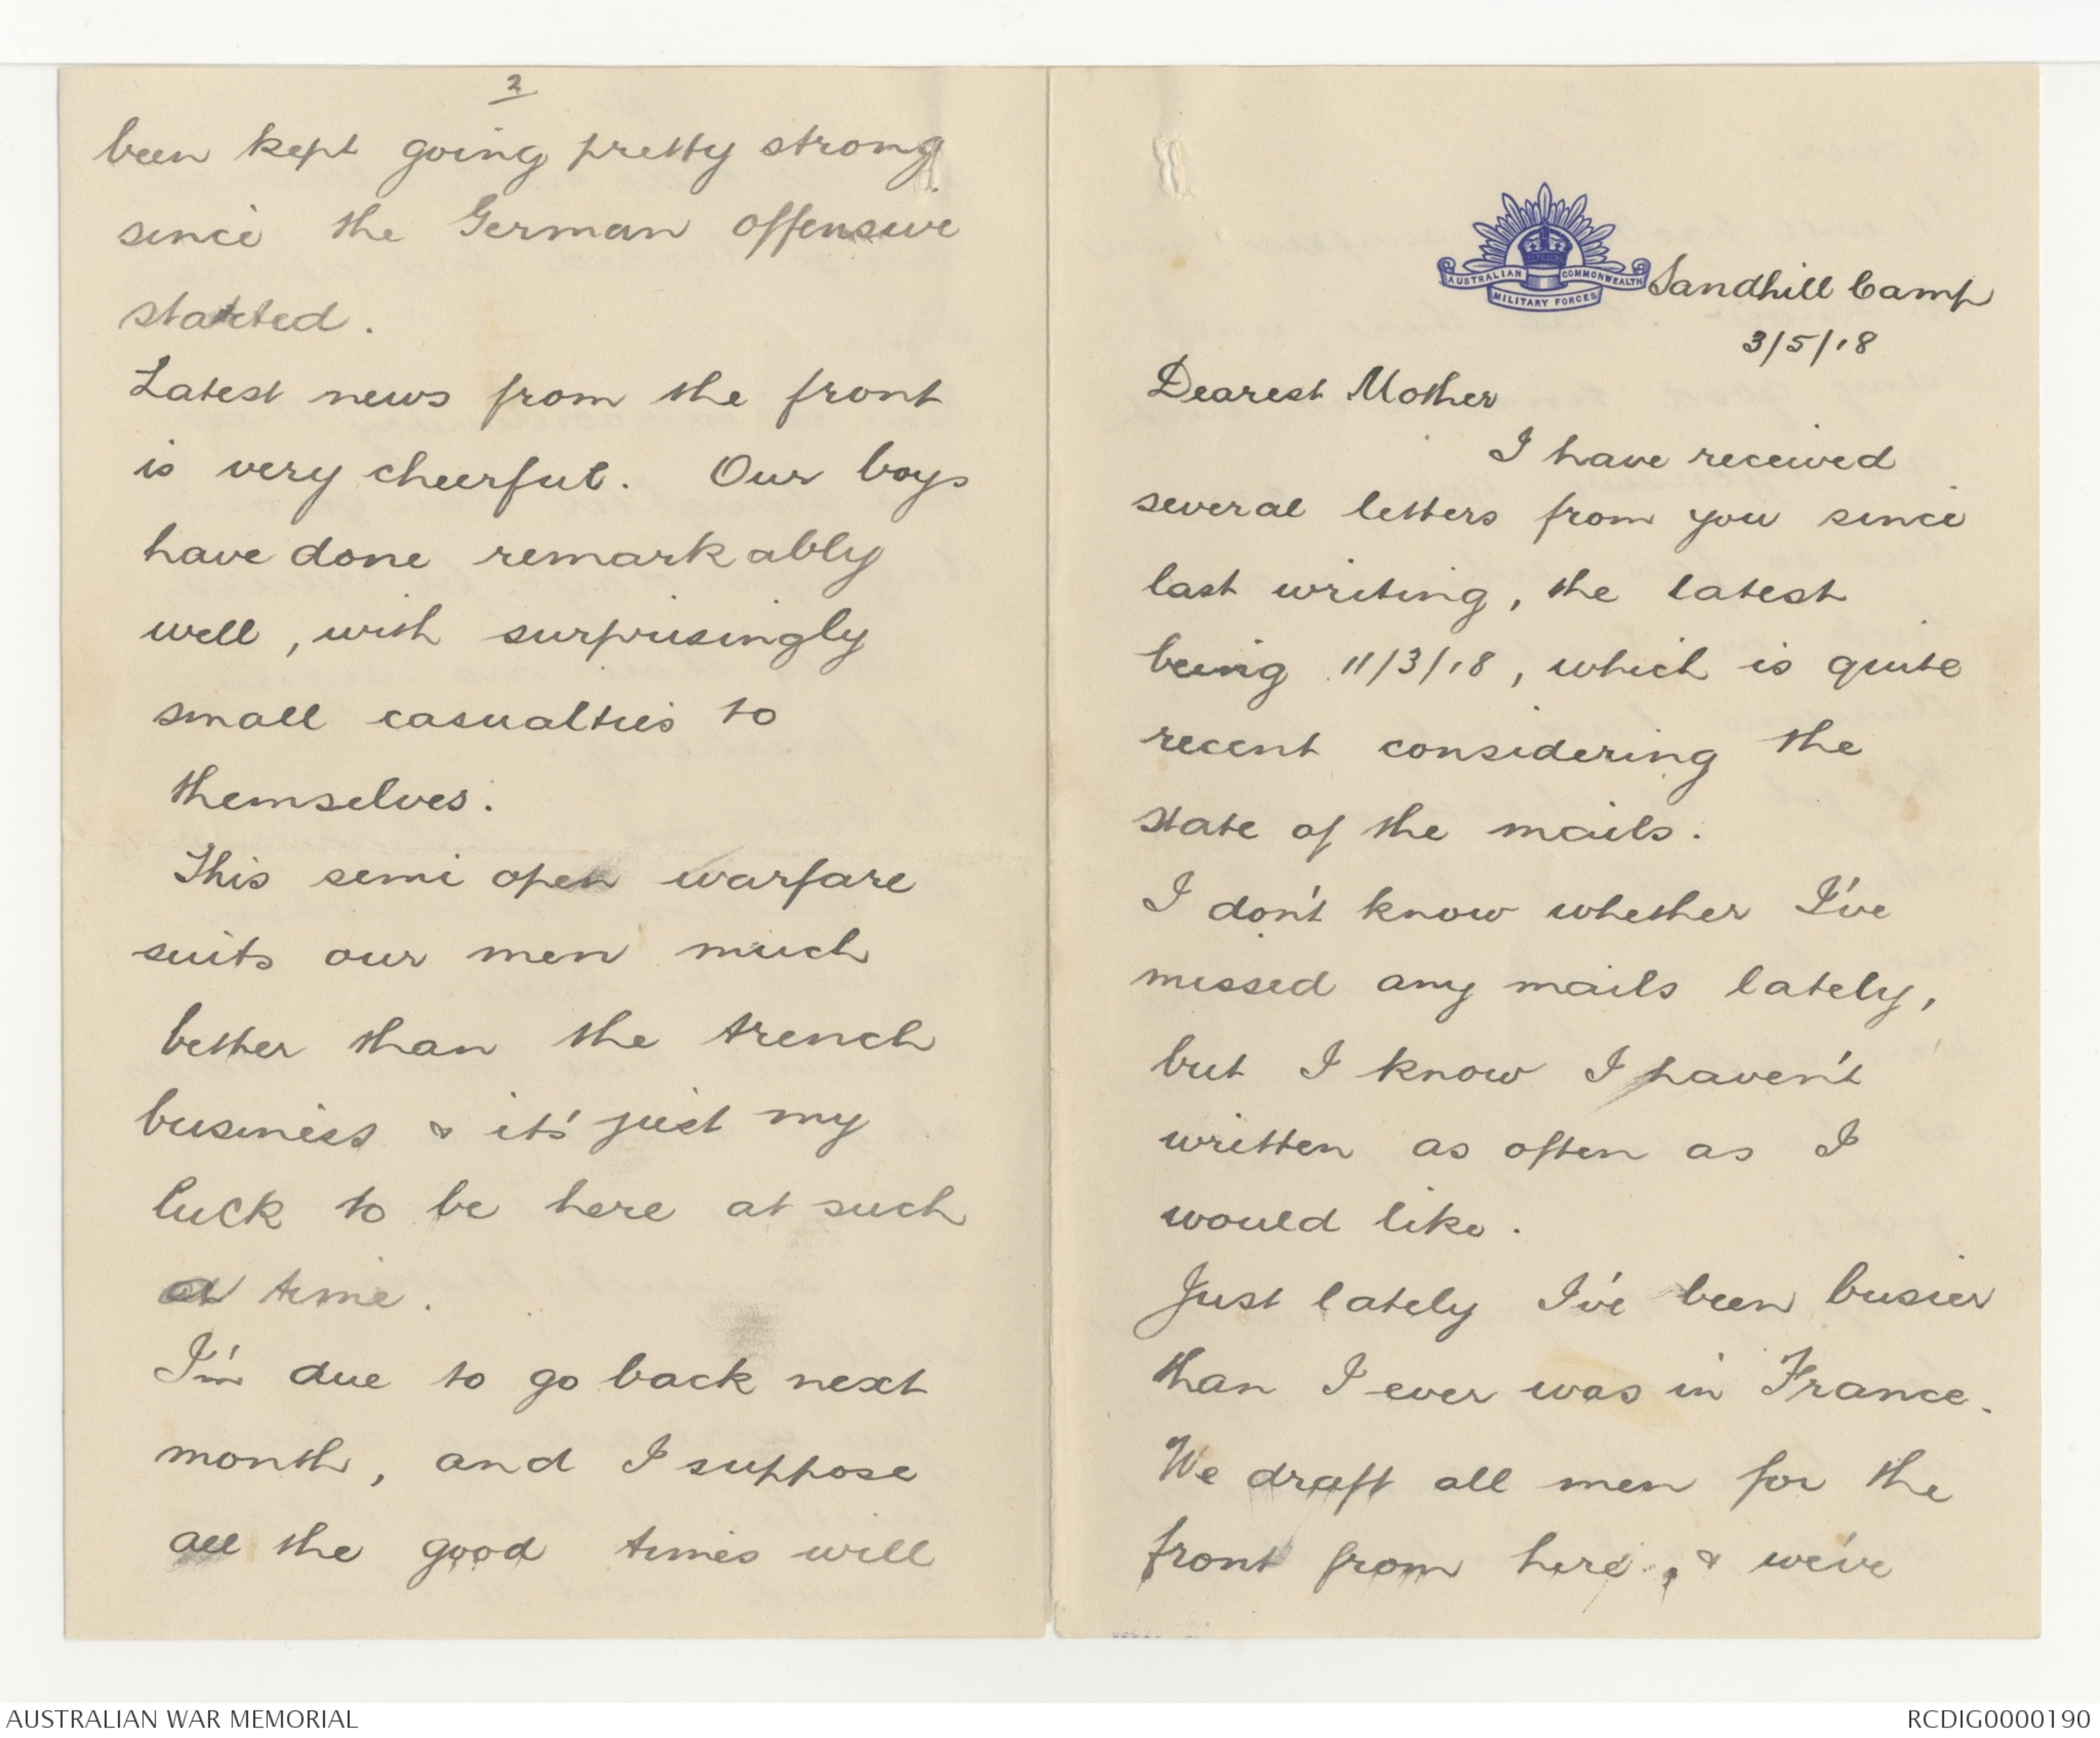 AUSTRALIAN COMMONWEALTH
MILITARY FORCES
Sandhill Camp
3/5/18
Dearest Mother
I have received
several letters from you since
last writing, the latest
being 11/3/18, which is quite
recent considering the
state of the mails.
I don't know whether I've
missed any mails lately,
but I know I haven't
written as often as I
would like.
Just lately I've been busier
than I ever was in France.
We draft all men for the
front from here, & we've
2
been kept going pretty strong
since the German offensive
started.
Latest news from the front
is very cheerful. Our boys
have done remarkably
well, with surprisingly
small casualties to
themselves.
This semi open warfare
suits our men much
better than the trench
business & it's just my
luck to be here at such
a time.
I'm due to go back next
month, and I suppose
all the good times will
AUSTRALIAN WAR MEMORIAL
RCDIG0000190